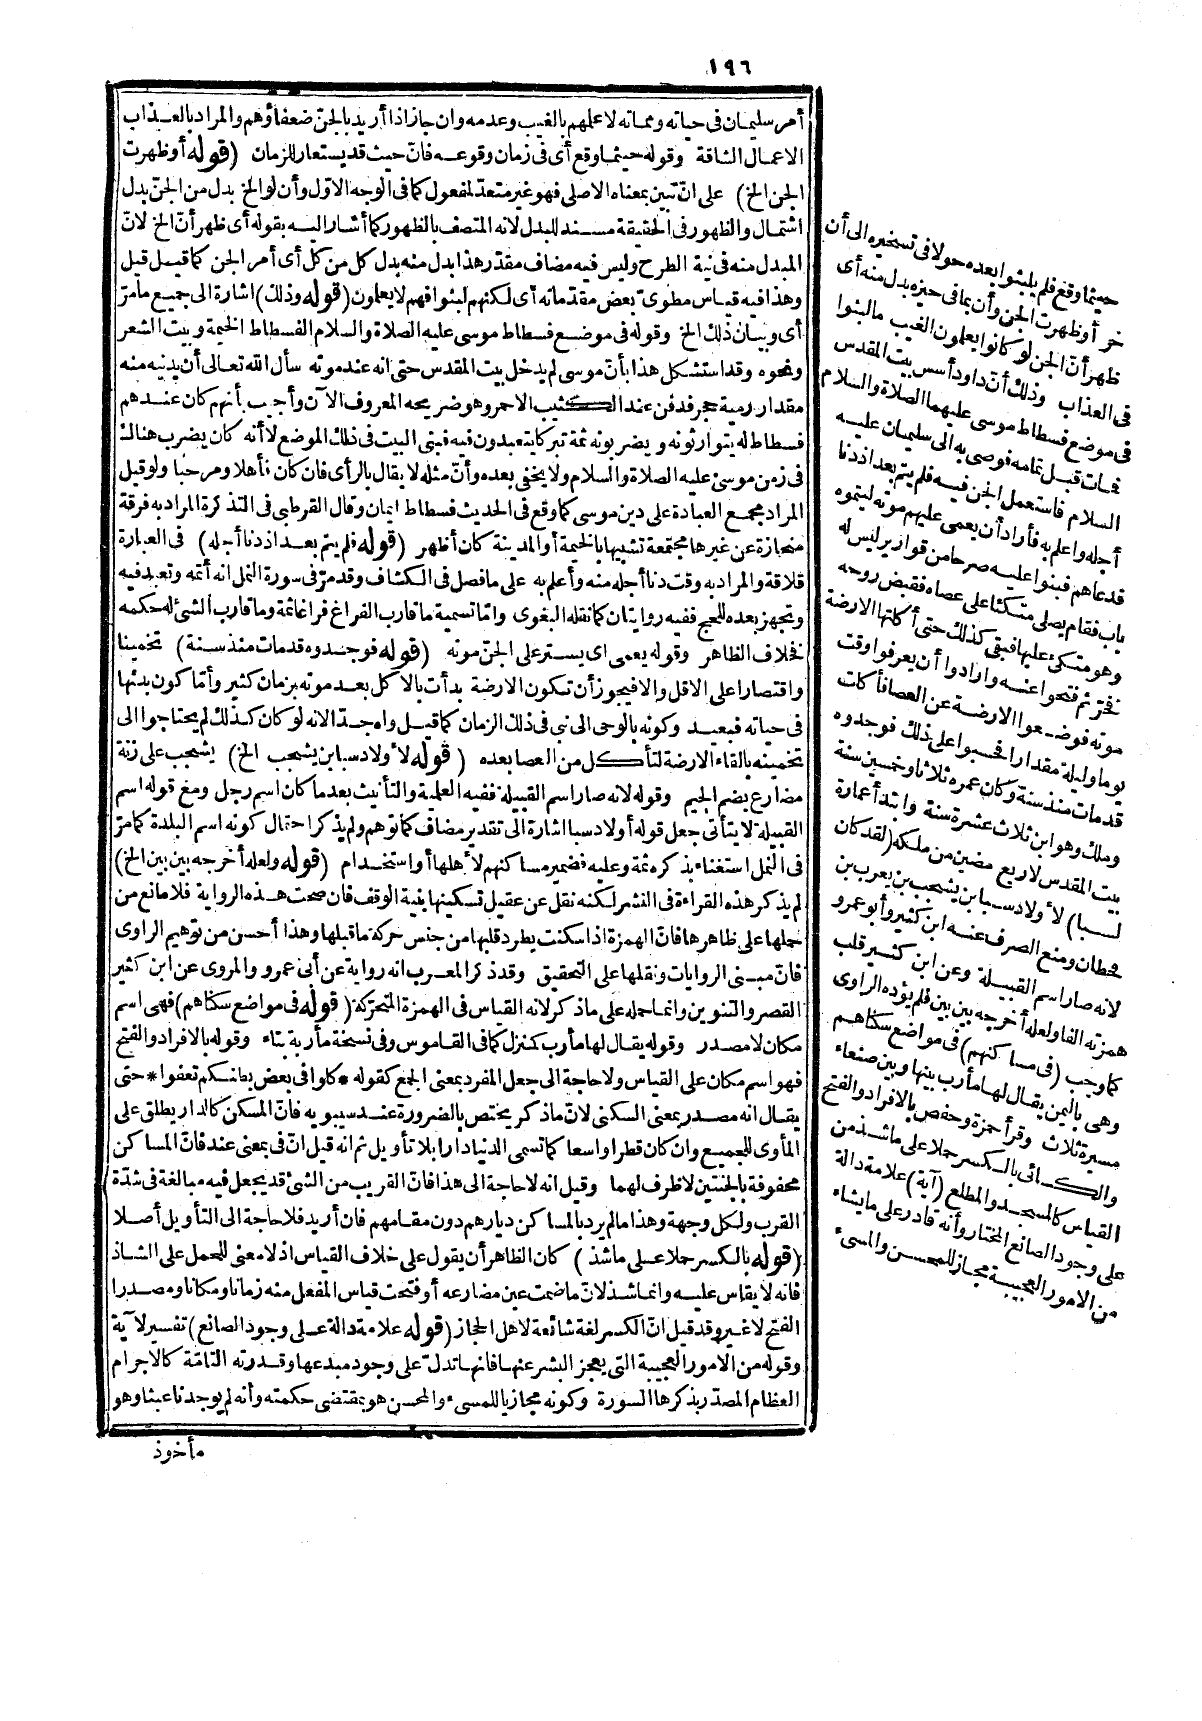 ١٩٦
أمر سليمان فى حياته ومماته لا علمهم بالغيب وعدمه وان جاز اذا أريد بالجنّ ضعفاؤهم والمراد بالعذاب
الاعمال الشاقة وقوله حيثما وقع أى فى زمان وقوعه فانّ حيث قد يستعار للزمان (قوله أو ظهرت
الجن الخ) على انّ تبين بمعناه الاصلى فهو غير متعدّ لمفعول كما فى الوجه الاوّل وأن لو الخ بدل من الجنّ بدل
اشتمال والظهور فى الحقيقة مسند للبدل لانه المتصف بالظهور كما أشار اليه بقوله أى ظهر أنّ الخ لانّ
المبدل منه فى نية الطرح وليس فيه مضاف مقدّر هذا بدل منه بدل كل من كل أى أمر الجن كما قيل قيل
وهذا فيه قياس مطوىّ بعض مقدّماته أى لكنهم لبثوا فهم لا يعلمون (قوله وذلك) اشارة الى جميع ما مرّ
أى وبيان ذلك الخ وقوله فى موضع فسطاط موسى عليه الصلاة والسلام الفسطاط الخيمة وبيت الشعر
ونحوه وقد استشكل هذا بأنّ موسى لم يدخل بيت المقدس حتى انه عند موته سأل الله تعالى أن يدنيه منه
مقدار رمية حجر فدفن عند الكثيب الاحمر وهو ضريحه المعروف الآن وأجيب بأنهم كان عندهم
فسطاط له يتوارثونه ويضربونه ثمة تبركا يتعبدون فيه فبنى البيت فى ذلك الموضع لا أنه كان يضرب هنالك
فى زمن موسى عليه الصلاة والسلام ولا يخفى بعده وأنّ مثله لا يقال بالرأى فان كان فأهلا ومرحبا ولو قيل
المراد مجمع العبادة على دين موسى كما وقع فى الحديث فسطاط ايمان وقال القرطبى فى التذكرة المراد به فرقة
منحازة عن غيرها مجتمعة تشبيها بالخيمة أو المدينة كان أظهر (قوله فلم يتم بعد اذ دنا أجله) فى العبارة
قلاقة والمراد به وقت دنا أجله منه وأعلم به على ما فصل فى الكشاف وقد مرّ فى سورة النمل انه أتمه وتعبد فيه
وتجهز بعده للحج ففيه روايتان كما نقله البغوى وامّا تسمية ما قارب الفراغ فراغا ثمة وما قارب الشئ له حكمه
فخلاف الظاهر وقوله يعمى اى يستر على الجنّ موته (قوله فوجدوه قد مات منذ سنة) تخمينا
واقتصارا على الاقل والا فيجوز أن تكون الارضة بدأت بالاكل بعد موته بزمان كثير وأمّا كون بدئها
فى حياته فبعيد وكونه بالوحى الى نبى فى ذلك الزمان كما قيل واه جدّا لانه لو كان كذلك لم يحتاجوا الى
تخمينه بالقاء الارضة لتأكل من العصا بعده (قوله لأولاد سبا بن يشجب الخ) يشجب على زنة
مضارع بضم الجيم وقوله لانه صار اسم القبيلة ففيه العلمية والتأنيث بعد ما كان اسم رجل ومع قوله اسم
القبيلة لا يتأتى جعل قوله أولاد سبا اشارة الى تقدير مضاف كما توهم ولم يذكر احتمال كونه اسم البلدة كما مرّ
فى النمل استغناء بذكره ثمة وعليه فضمير مساكنهم لأهلها أو استخدام (قوله ولعله أخرجه بين بين الخ)
لم يذكر هذه القراءة فى النشر لكنه نقل عن عقيل تسكينها بنية الوقف فان صحت هذه الرواية فلا مانع من
حملها على ظاهرها فانّ الهمزة اذا سكنت يطرد قلبها من جنس حركة ما قبلها وهذا أحسن من توهيم الراوى
فانّ مبنى الروايات ونقلها على التحقيق وقد ذكر المعرب انه رواية عن أبى عمرو والمروى عن ابن كثير
القصر والتنوين وانما حمله على ما ذكر لانه القياس فى الهمزة المتحرّكة (قوله فى مواضع سكناهم) فهى اسم
مكان لا مصدر وقوله يقال لها مأرب كمنزل كما فى القاموس وفى نسخة مأربة بتاء وقوله بالافراد والفتح
فهو اسم مكان على القياس ولا حاجة الى جعل المفرد بمعنى الجمع كقوله *كلوا فى بعض بطنكم تعفوا* حتى
يقال انه مصدر بمعنى السكنى لانّ ما ذكر يختص بالضرورة عند سيبويه فانّ المسكن كالدار يطلق على
المأوى للجميع وان كان قطرا واسعا كما تسمى الدنيا دارا بلا تأويل ثم انه قيل انّ فى بمعنى عند فانّ المساكن
محفوفة بالجنتين لا ظرف لهما وقيل انه لا حاجة الى هذا فانّ القريب من الشئ قد يجعل فيه مبالغة فى شدّة
القرب ولكل وجهة وهذا ما لم يرد بالمساكن ديارهم دون مقامهم فان أريد فلا حاجة الى التأويل أصلا
(قوله بالكسر حملا على ما شذ) كان الظاهر أن يقول على خلاف القياس اذ لا معنى للحمل على الشاذ
فانه لا يقاس عليه وانما شذ لانّ ما ضمت عين مضارعه أو فتحت قياس المفعل منه زمانا ومكانا ومصدرا
الفتح لا غير وقد قيل انّ الكسر لغة شائعة لاهل الحجاز (قوله علامة دالة على وجود الصانع) تفسير لآية
وقوله من الامور العجيبة التى يعجز البشر عنها فانها تدلّ على وجود مبدعها وقدرته التامّة كالاجرام
العظام المصدّر بذكرها السورة وكونه مجازيا للمسىء والمحسن هو بمقتضى حكمته وأنه لم يوجدنا عبثا وهو
مأخوذ
حيثما وقع فلم يلبثوا بعده حولا فى تسخيره الى أن
خر أو ظهرت الجن وأن بما فى حيزه بدل منه أى
ظهر أنّ الجن لو كانوا يعلمون الغيب ما لبثوا
فى العذاب وذلك أن داود أسس بيت المقدس
فى موضع فسطاط موسى عليهما الصلاة والسلام
فمات قبل تمامه فوصى به الى سليمان عليه
السلام فاستعمل الجن فيه فلم يتم بعد اذ دنا
أجله واعلم به فأراد أن يعمى عليهم موته ليتموه
فدعاهم فبنوا عليه صرحا من قوارير ليس له
باب فقام يصلى متكئا على عصاه فقبض روحه
وهو متكئ عليها فبقى كذلك حتى أكلتها الارضة
فخرّ ثم فتحوا عنه وارادوا أن يعرفوا وقت
موته فوضعوا الارضة عن العصا فأكلت
يوما وليلة مقدارا فحسبوا على ذلك فوجدوه
قد مات منذ سنة وكان عمره ثلاثا وخمسين سنة
وملك وهو ابن ثلاث عشرة سنة وابتدأ عمارة
بيت المقدس لاربع مضين من ملكه (لقد كان
لسبا) لأولاد سبا بن يشجب بن يعرب بن
قحطان ومنع الصرف عنه ابن كثير وأبو عمرو
لانه صار اسم القبيلة وعن ابن كثير قلب
همزته ألفا ولعله أخرجه بين بين فلم يؤده الراوى
كما وجب (فى مساكنهم) فى مواضع سكناهم
وهى باليمن يقال لها مأرب بينها وبين صنعاء
مسيرة ثلاث وقرأ حمزة وحفص بالافراد والفتح
والكسائى بالكسر حملا على ما شذ من
القياس كالمسجد والمطلع (آية) علامة دالة
على وجود الصانع المختار وأنه قادر على ما يشاء
من الامور العجيبة مجاز للمحسن والمسىء